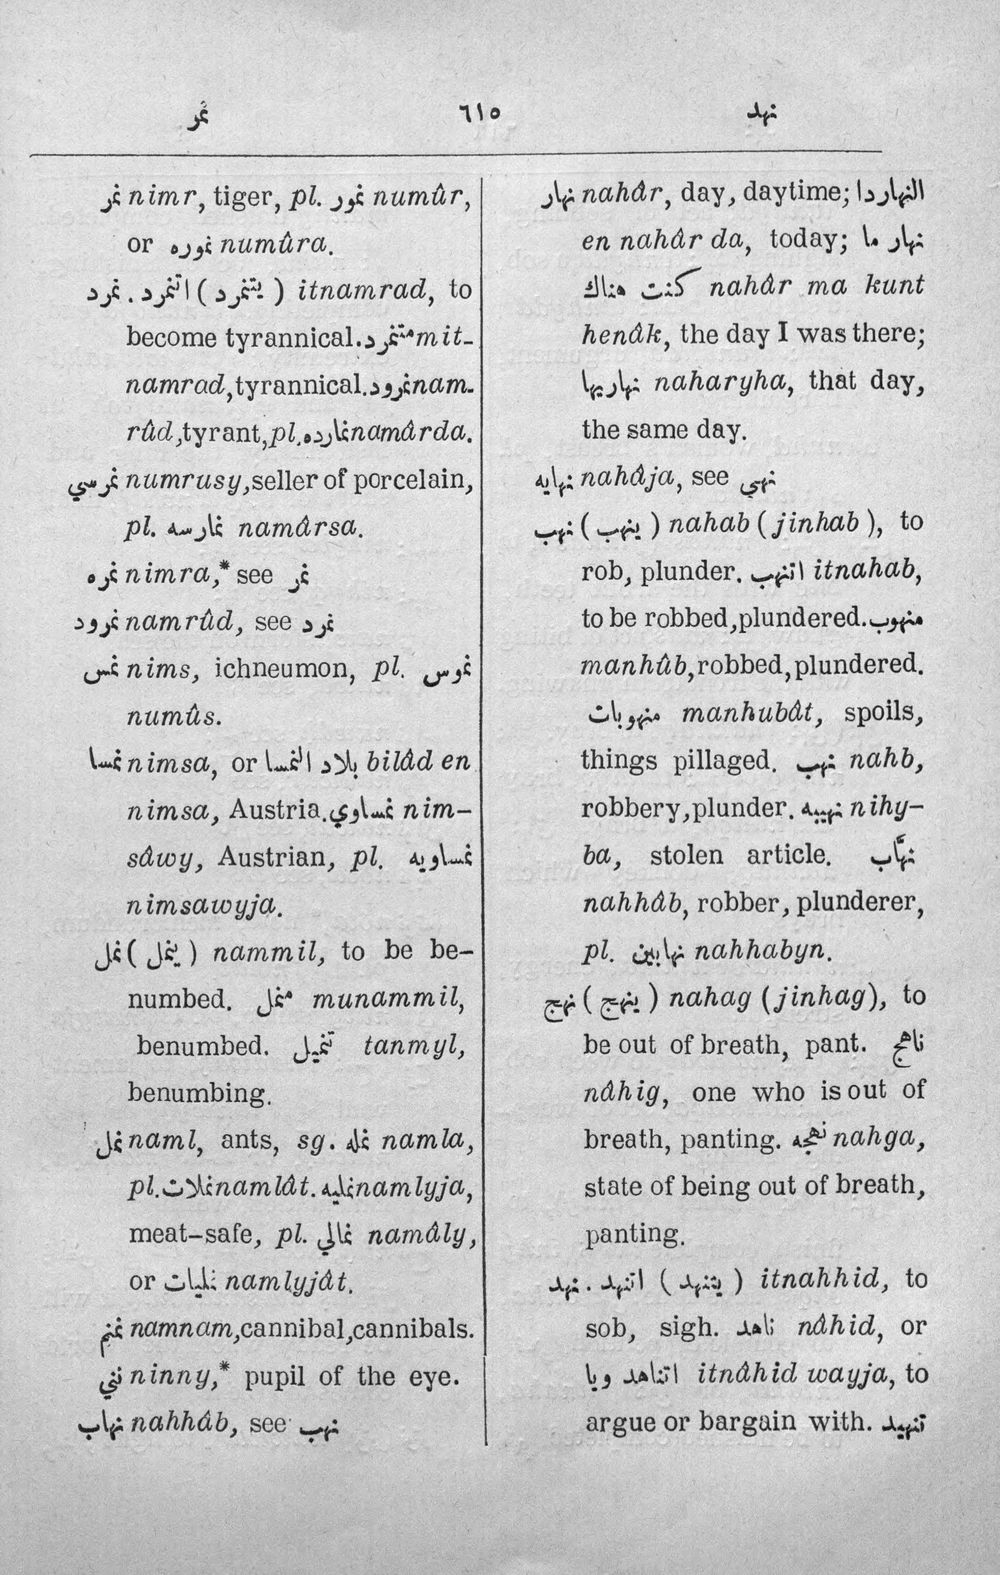 نمر ٦١٥ نهد
نمر nimr, tiger, pl. نمور numûr,
or نموره numûra.
نمرد . اتنمرد ( يتنمرد ) itnamrad, to
become tyrannical. متنمرد mit-
namrad, tyrannical. نمرود nam-
rûd, tyrant, pl. نمارده namârda.
نمرسي numrusy, seller of porcelain,
pl. نمارسه namârsa.
نمره nimra,* see نمر
نمرود namrûd, see نمرد
نمس nims, ichneumon, pl. نموس
numûs.
نمسا nimsa, or بلاد النمسا bilâd en
nimsa, Austria. نمساوي nim-
sâwy, Austrian, pl. نمساويه
nimsawyja.
نمل ( ينمل ) nammil, to be be-
numbed. منمل munammil,
benumbed. تنميل tanmyl,
benumbing.
نمل naml, ants, sg. نمله namla,
pl. نملات namlât. نمليه namlyja,
meat-safe, pl. نمالي namâly,
or نمليات namlyjât.
نمنم namnam, cannibal, cannibals.
نني ninny,* pupil of the eye.
نهاب nahhâb, see نهب
نهار nahâr, day, daytime; النهاردا
en nahâr da, today; نهار ما
كنت هناك nahâr ma kunt
henâk, the day I was there;
نهاريها naharyha, that day,
the same day.
نهايه nahâja, see نهي
نهب ( ينهب ) nahab (jinhab), to
rob, plunder. اتنهب itnahab,
to be robbed, plundered. منهوب
manhûb, robbed, plundered.
منهوبات manhubât, spoils,
things pillaged. نهب nahb,
robbery, plunder. نهيبه nihy-
ba, stolen article. نهّاب
nahhâb, robber, plunderer,
pl. نهابين nahhabyn.
نهج ( ينهج ) nahag (jinhag), to
be out of breath, pant. ناهج
nâhig, one who is out of
breath, panting. نهجه nahga,
state of being out of breath,
panting.
نهد . اتنهد ( يتنهد ) itnahhid, to
sob, sigh. ناهد nâhid, or
اتناهد ويا itnâhid wayja, to
argue or bargain with. تنهيد